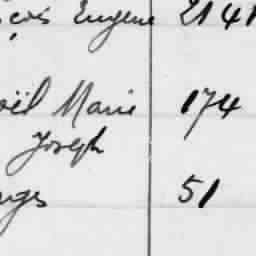 çois Eugene 2141
oël Marie 174
Joseph
nges 51